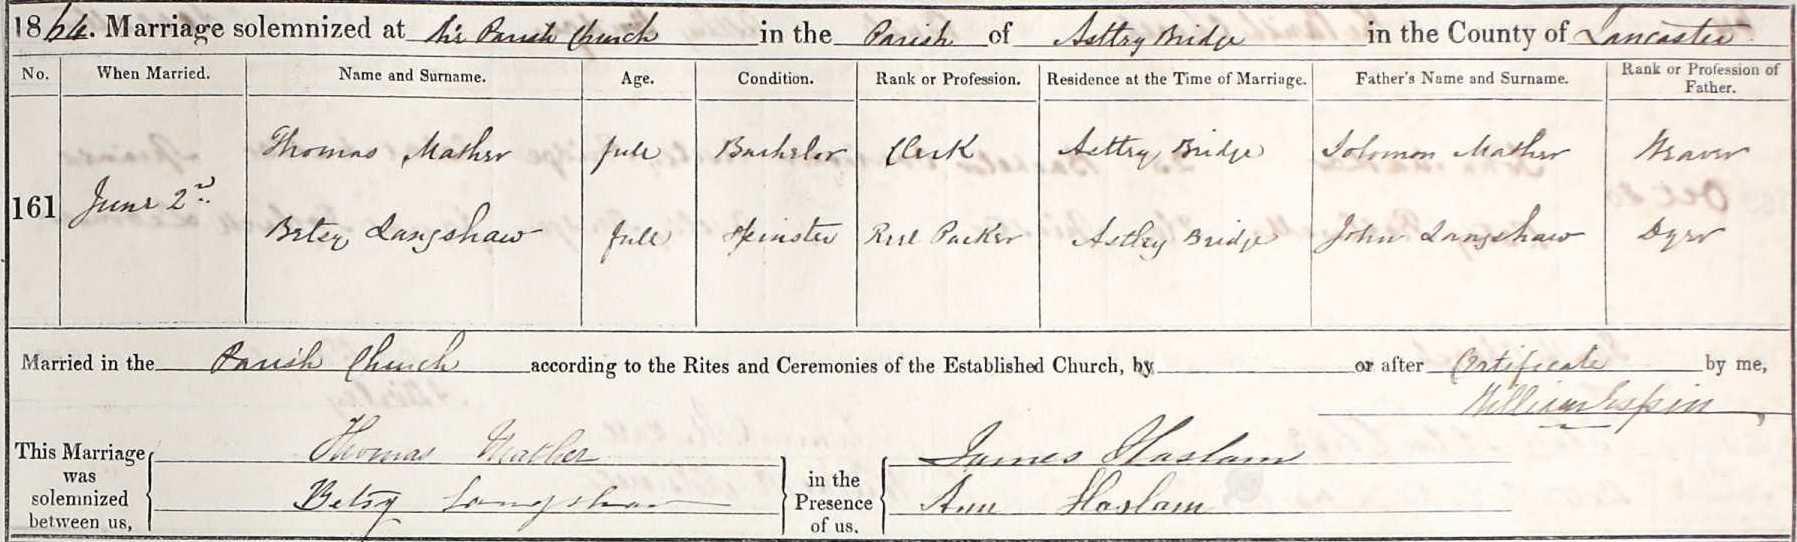 1864. Marriage solemnized at this Parish Church in the Parish of Astley Bridge in the County of Lancaster
No. When Married. Name and Surname. Age. Condition. Rank or Profession. Residence at the Time of Marriage. Father's Name and Surname. Rank or Profession of Father.
161 June 2nd
Thomas Mather full Bachelor Clerk Astley Bridge Solomon Mather Weaver
Betsy Langshaw full Spinster Reel Packer Astley Bridge John Langshaw Dyer
Married in the Parish Church according to the Rites and Ceremonies of the Established Church, by or after Certificate by me,
William Espin
This Marriage was solemnized between us, Thomas Mather Betsy Langshaw in the Presence of us. James Haslam Ann Haslam